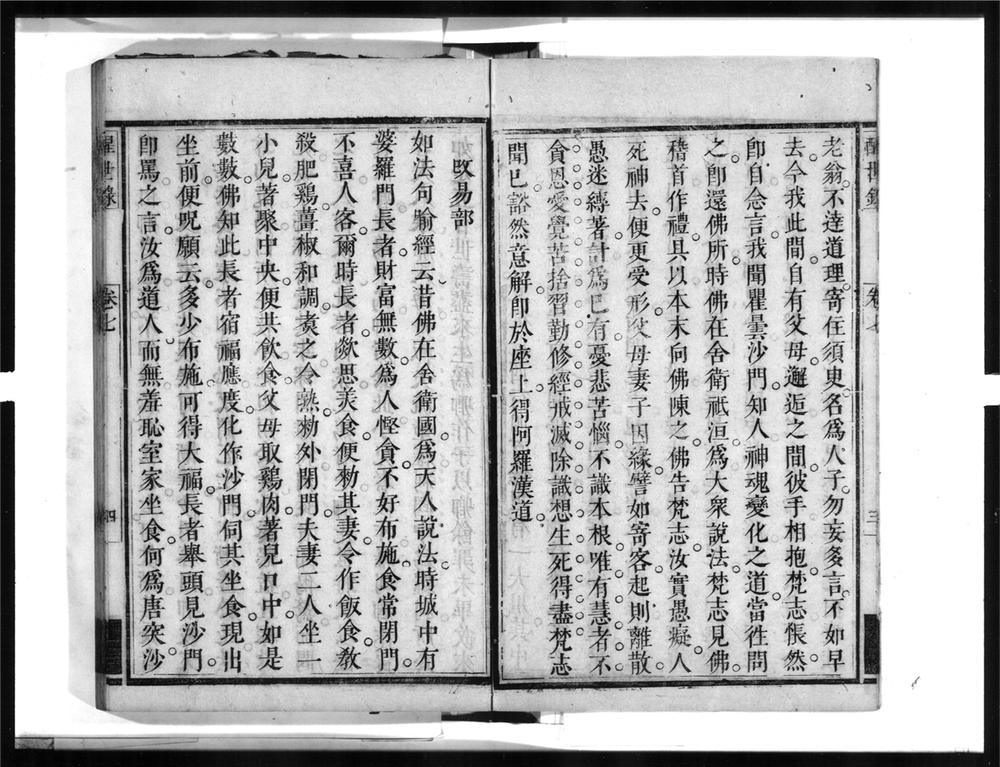 醒世錄
卷七
三
老翁不達道理寄住須臾名爲人子勿妄多言不如早
去今我此間自有父母邂逅之間彼手相抱梵志悵然
卽自念言我聞瞿曇沙門知人神魂變化之道當徃問
之卽還佛所時佛在舍衛祇洹爲大衆說法梵志見佛
稽首作禮具以本末向佛陳之佛告梵志汝實愚癡人
死神去便更受形父母妻子因緣譬如寄客起則離散
愚迷縛著計爲巳有憂悲苦惱不識本根唯有慧者不
貪恩愛覺苦捨習勤修經戒滅除識想生死得盡梵志
聞巳豁然意解卽於座上得阿羅漢道
攺易部
如法句喻經云昔佛在舍衛國爲天人說法時城中有
婆羅門長者財富無數爲人慳貪不好布施食常閉門
不喜人客爾時長者欻思美食便勑其妻令作飯食敎
殺肥鷄薑椒和調煑之令熟勑外閉門夫妻二人坐一
小兒著聚中央便共飮食父母取鷄肉著兒口中如是
數數佛知此長者宿福應度化作沙門伺其坐食現出
坐前便呪願云多少布施可得大福長者舉頭見沙門
卽罵之言汝爲道人而無羞恥室家坐食何爲唐突沙
醒世錄
卷七
四